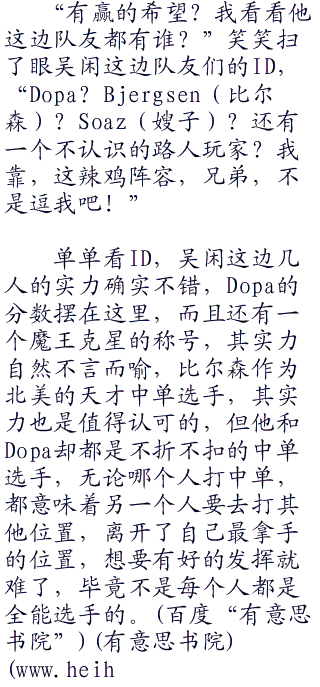 “有赢的希望？我看看他
这边队友都有谁？”笑笑扫
了眼吴闲这边队友们的ID，
“Dopa？Bjergsen（比尔
森）？Soaz（嫂子）？还有
一个不认识的路人玩家？我
靠，这辣鸡阵容，兄弟，不
是逗我吧！”
单单看ID，吴闲这边几
人的实力确实不错，Dopa的
分数摆在这里，而且还有一
个魔王克星的称号，其实力
自然不言而喻，比尔森作为
北美的天才中单选手，其实
力也是值得认可的，但他和
Dopa却都是不折不扣的中单
选手，无论哪个人打中单，
都意味着另一个人要去打其
他位置，离开了自己最拿手
的位置，想要有好的发挥就
难了，毕竟不是每个人都是
全能选手的。(百度“有意思
书院”)(有意思书院)
(www.heih